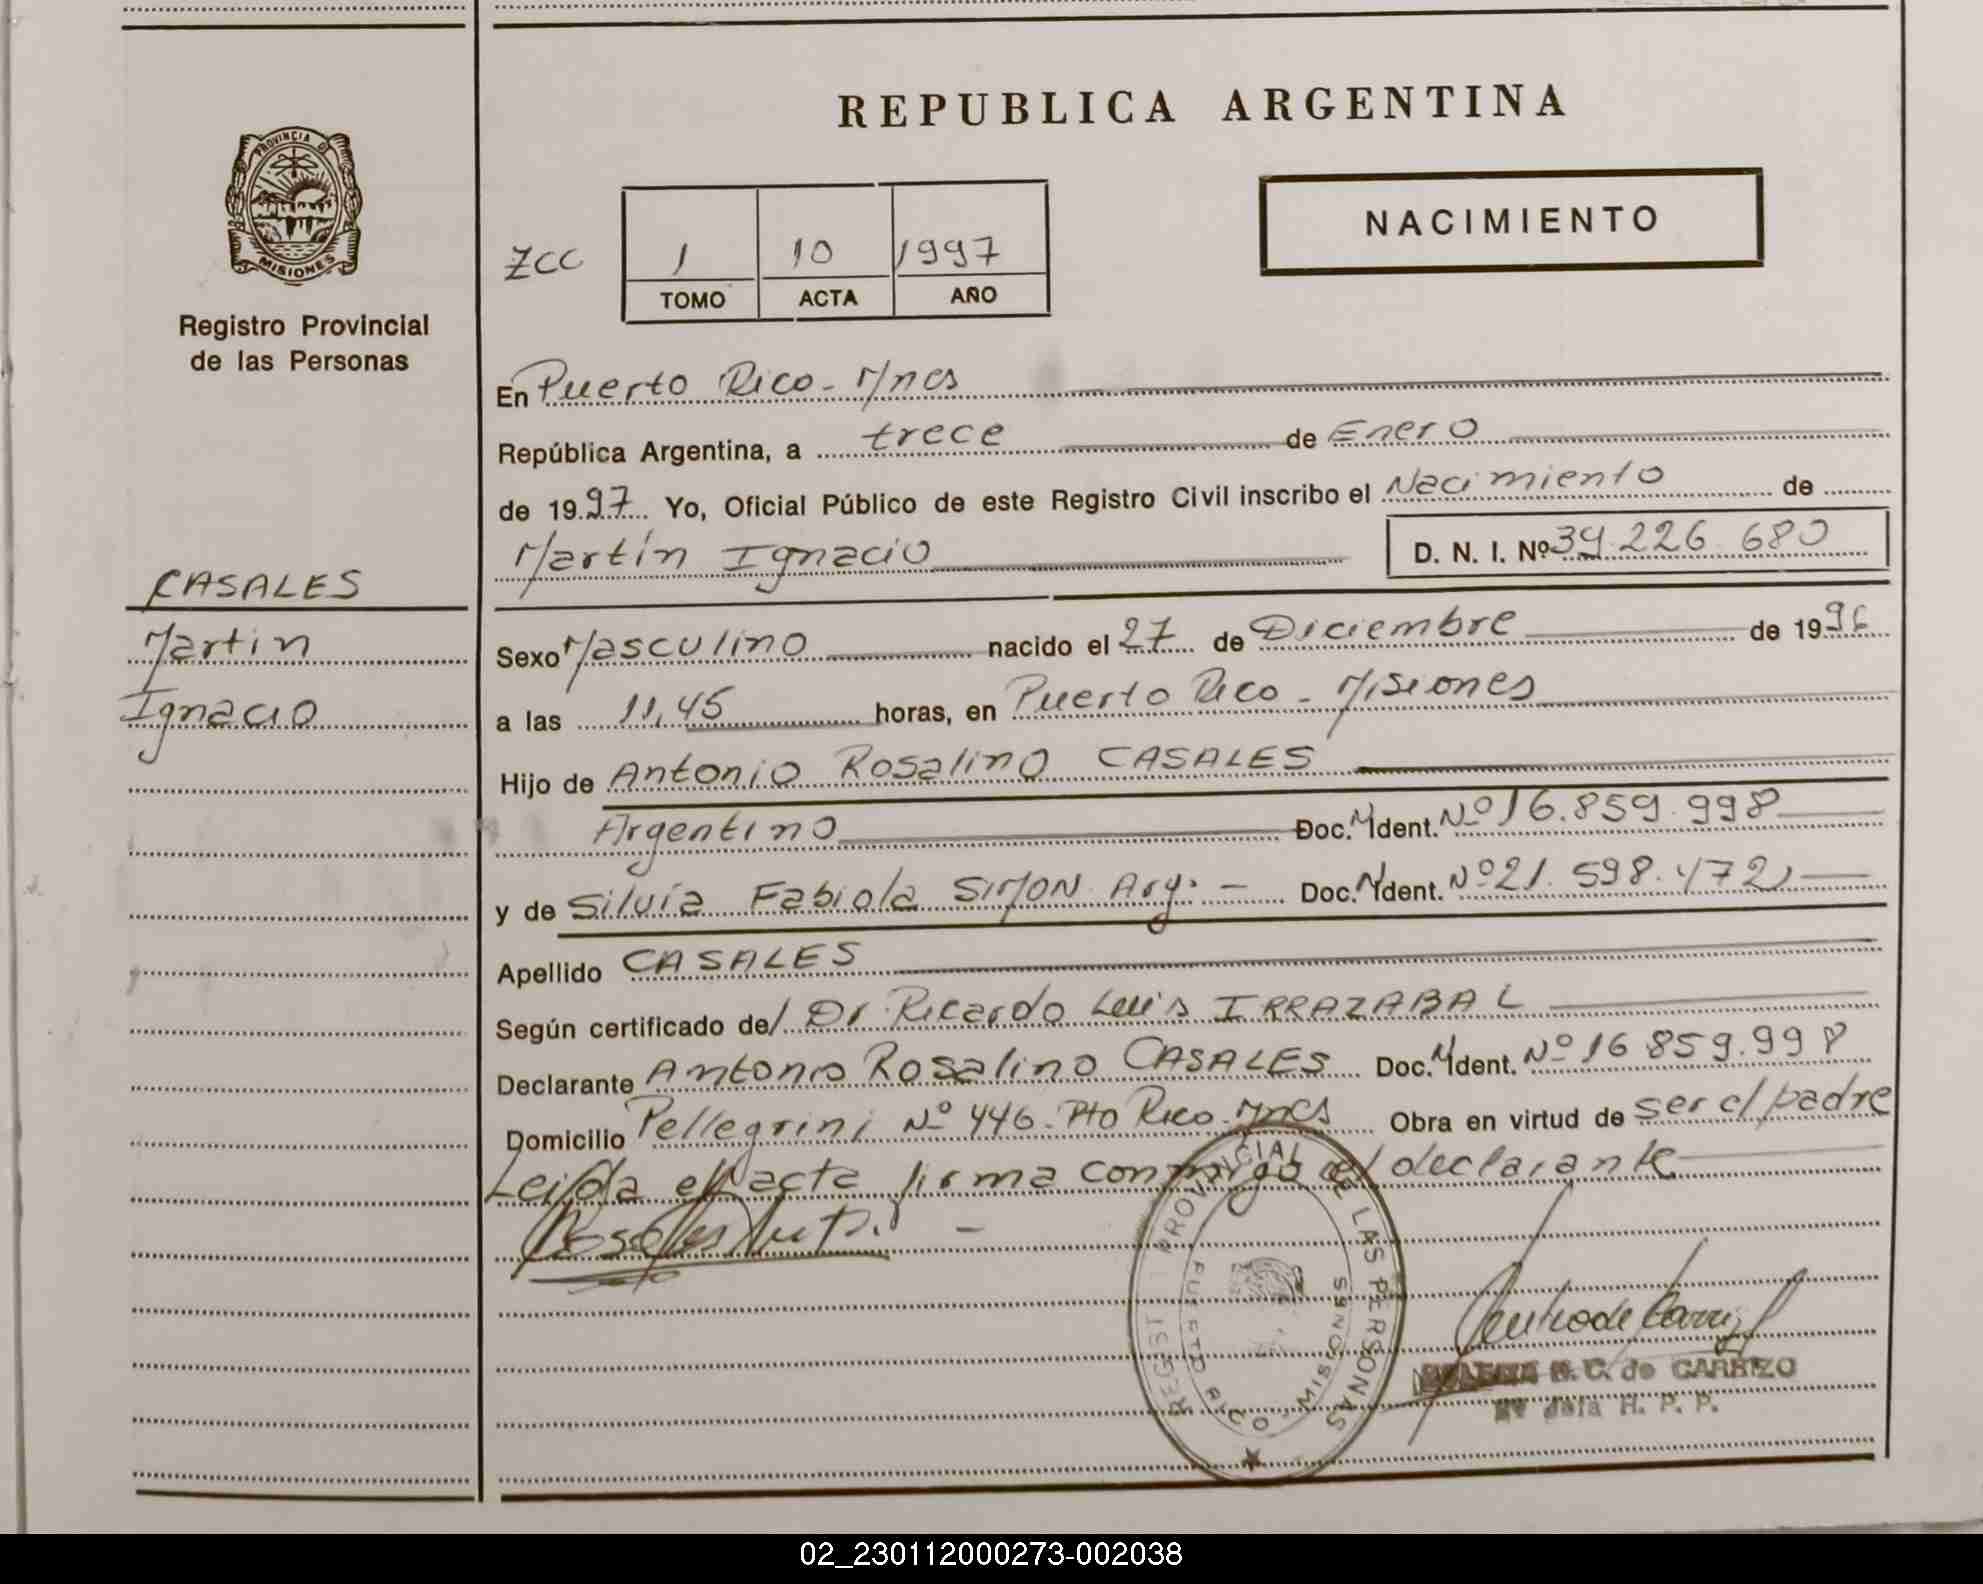 REPUBLICA ARGENTINA
PROVINCIA DE
MISIONES
Registro Provincial
de las Personas
NACIMIENTO
ZCC
1 10 1997
TOMO ACTA AÑO
En Puerto Rico - Mnes
República Argentina, a trece de Enero
de 1997 Yo, Oficial Público de este Registro Civil inscribo el Nacimiento de
Martín Ignacio D. N. I. Nº 39.226.680
CASALES
Martin
Ignacio
Sexo Masculino nacido el 27 de Diciembre de 1996
a las 11,45 horas, en Puerto Rico - Misiones
Hijo de Antonio Rosalino CASALES
Argentino Doc. M Ident. Nº 16.859.998
y de Silvia Fabiola SIMON Arg. - Doc. M Ident. Nº 21.598.472
Apellido CASALES
Según certificado de/ Dr Ricardo Luis IRRAZABAL
Declarante Antonio Rosalino CASALES Doc. M Ident. Nº 16.859.998
Domicilio Pellegrini Nº 446 - Pto Rico - Mnes Obra en virtud de ser el padre
Leida el acta firma conmigo el declarante
REGIST PROVINCIAL DE LAS PERSONAS
PUERTO RICO MISIONES
B. C. de CARRIZO
Jefa R. P. P.
02_230112000273-002038